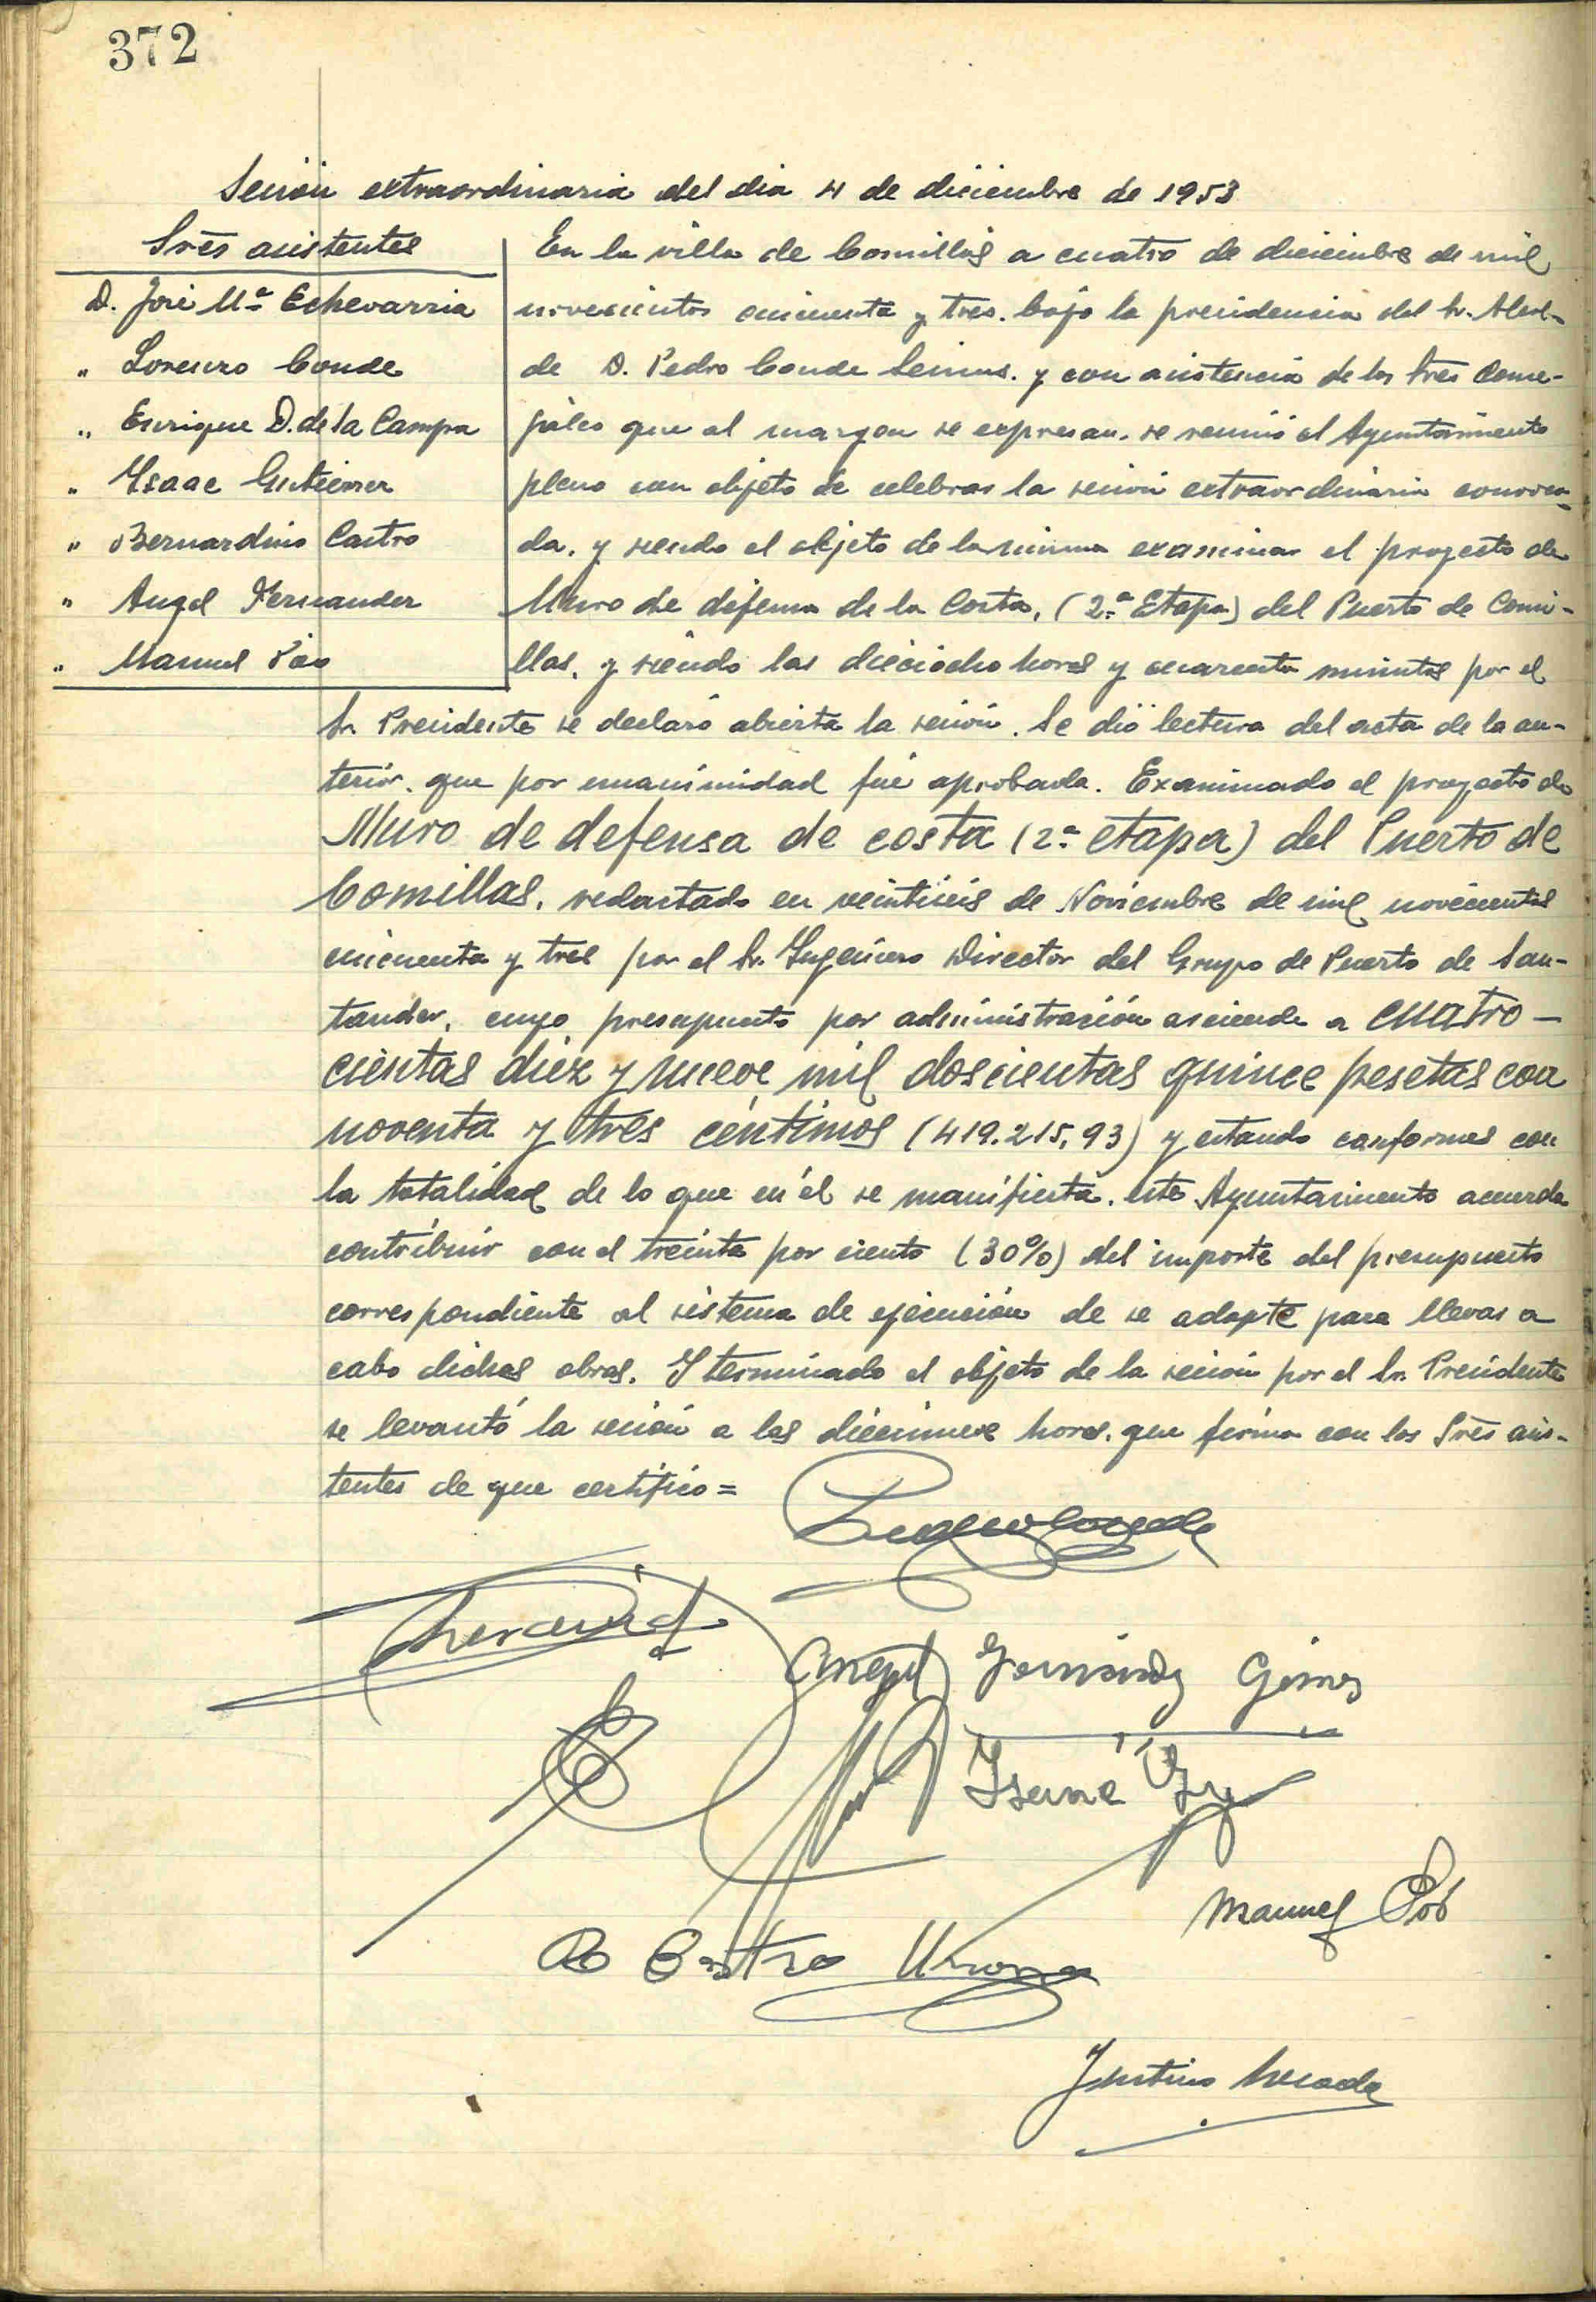 372
Sesión extraordinaria del dia 4 de diciembre de 1953
Sres asistentes
D. José Mª Echevarria
" Lorenzo Conde
" Enrique D. de la Campa
" Ysaac Gutierrez
" Bernardino Castro
" Angel Fernandez
" Manuel
En la villa de Comillas a cuatro de diciembre de mil
novecientos cincuenta y tres. bajo la presidencia del Sr. Alcal-
de D. Pedro Conde y con asistencia de los Sres Conce-
jales que al margen se expresan. se reunió el Ayuntamiento
pleno con objeto de celebrar la sesión extraordinaria convoca-
da. y siendo el objeto de la misma examinar el proyecto de
Muro de defensa de la Costa, (2.ª Etapa) del Puerto de Comi-
llas. y siendo las dieciocho horas y cuarenta minutos por el
Sr Presidente se declaró abierta la sesión. Se dió lectura del acta de la an-
terior. que por unanimidad fué aprobada. Examinado el proyecto de
Muro de defensa de costa (2ª etapa) del Puerto de
Comillas. redactado en veintiseis de Noviembre de mil novecientos
cincuenta y tres por el Sr. Yngeniero Director del Grupo de Puerto de San-
tander, cuyo presupuesto por administración asciende a cuatro-
cientas diez y nueve mil doscientas quince pesetas con
noventa y tres céntimos (419.215,93) y estando conformes con
la totalidad de lo que en él se manifiesta. este Ayuntamiento acuerda
contribuir con el treinta por ciento (30%) del importe del presupuesto
correspondiente al sistema de ejecución de se adopte para llevar a
cabo dichas obras. Y terminado el objeto de la sesión por el Sr. Presidente
se levantó la sesión a las diecinueve horas. que firma con los Sres asis-
tentes de que certifico =
Pedro Conde
Angel Fernández Gómez
Manuel
B Castro
Justino